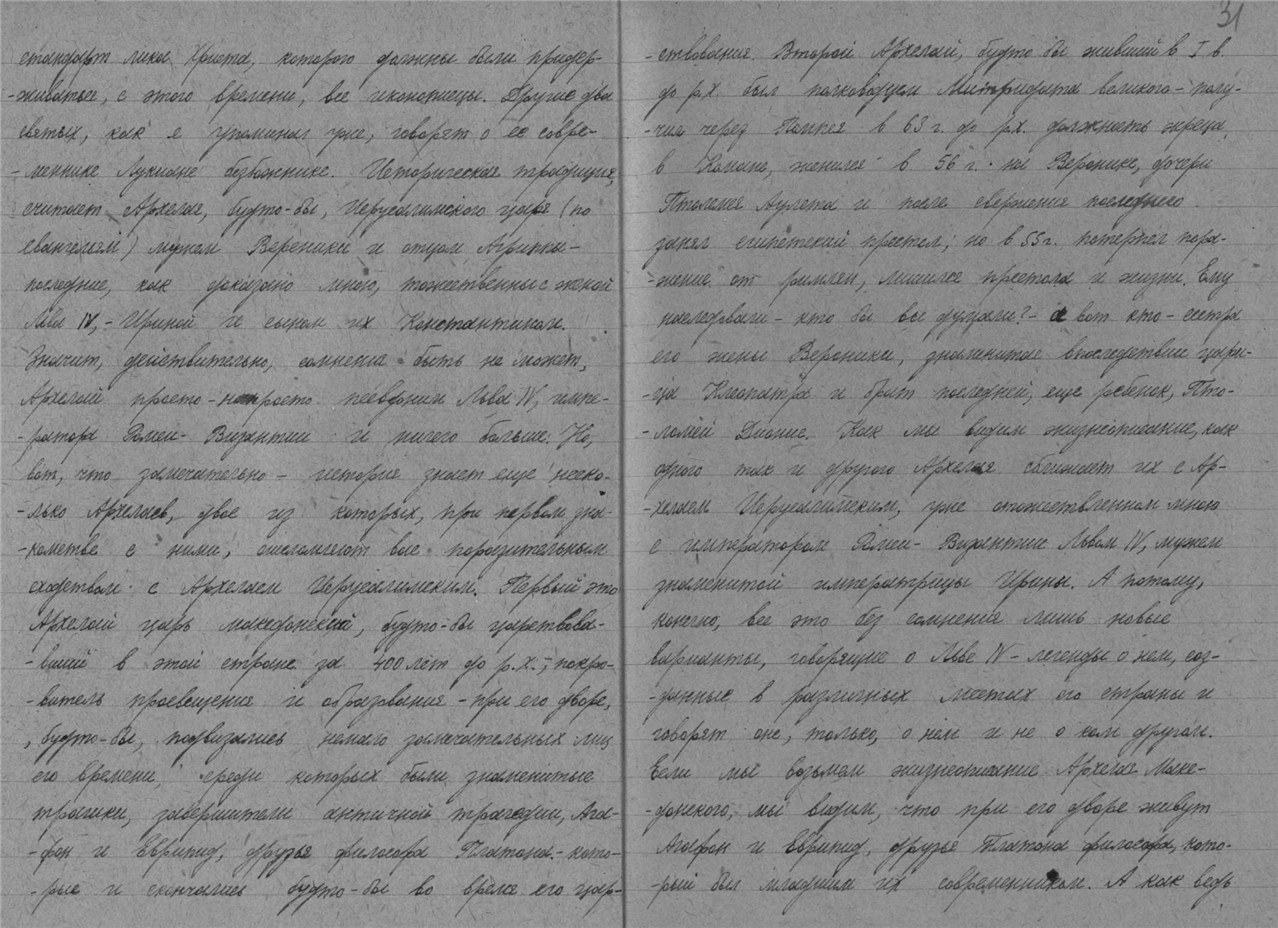 стандарт лика Христа, которого должны были придер-
-живаться, с этого времени, все иконописцы. Другие два
святых, как я упоминал уже, говорят о ее совре-
-меннике Лукиане безбожнике. Историческая традиция,
считает Архелая, будто-бы, Иерусалимского царя (по
евангелям) мужем Вереники и отцом Агриппы-
последние, как доказано мною, тожественны с женой
Льва IV,- Ириной и сыном их Константином.
Значит, действительно, сомнения быть не может,
Архелай просто-напросто псевдоним Льва IV, импе-
-ратора Ромеи-Византии и ничего больше. Но,
вот, что замечательно - история знает еще неско-
-лько Архелаев, двое из которых, при первом зна-
-комстве с ними, ошеломляют вас поразительным
сходством с Архелаем Иерусалимским. Первый это
Архелай царь македонский, будто-бы царствова-
-вший в этой стране за 400 лет до р.х., покро-
-витель просвещения и образования - при его дворе,
, будто-бы, подвизались немало замечательных лиц
его времени, среди которых были знаменитые
трагики, завершители античной трагедии, Ага-
-фон и Еврипид, друзья философа Платона.- кото-
-рые и скончались будто-бы во время его цар-
31
-ствования. Второй Архелай, будто бы живший в I в.
до р.х. был полководцем Митридата великого - полу-
-чил через Помпея в 63 г. до р.х. должность жреца
в Комане, женился в 56 г. на Веронике, дочери
Птолемея Аулета и после свержения последнего
занял египетский престол; но в 55 г. потерпел пора-
-жение от римлян, лишился престола и жизни. Ему
наследовали - кто бы вы думали? - а вот кто - сестра
его жены Вероники, знаменитая впоследствии цари-
-ца Клеопатра и брат последней, еще ребенок, Пто-
-ломей Дионис. Как мы видим жизнеописание, как
одного так и другого Архелая сближает их с Ар-
-хелаем Иерусалимским, уже отожествленном мною
с императором Ромеи-Византии Львом IV, мужем
знаменитой императрицы Ирины. А потому,
конечно, все это без сомнения лишь новые
варианты, говорящие о Льве IV - легенды о нем, соз-
-данные в различных местах его страны и
говорят оне, только, о нем и не о ком другом.
Если мы возьмем жизнеописание Архелая Маке-
-донского, мы видим, что при его дворе живут
Агафон и Еврипид, друзья Платона философа, кото-
-рый был младшим их современником. А как ведь